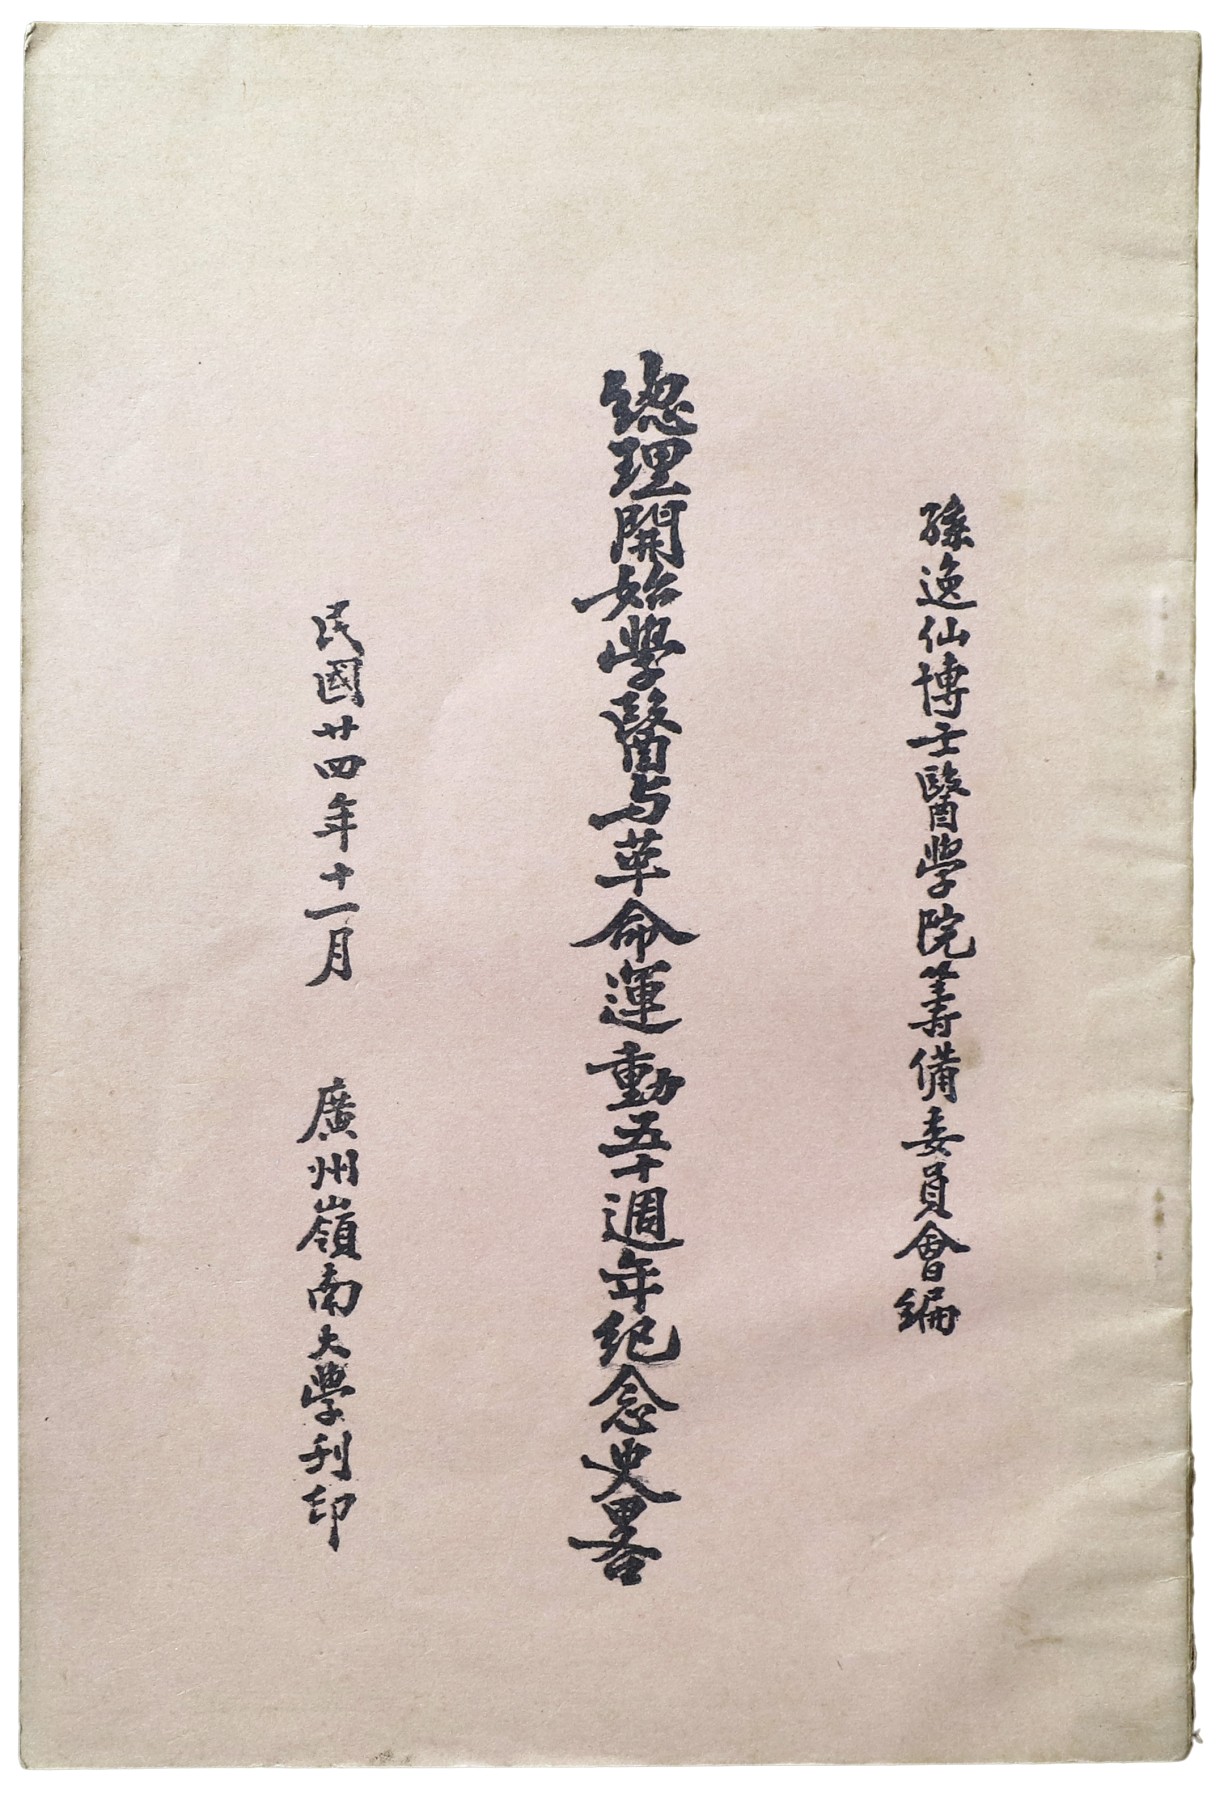 孫逸仙博士醫學院籌備委員會編
總理開始學醫与革命運動五十週年紀念史畧
民國廿四年十一月 廣州嶺南大學刊印